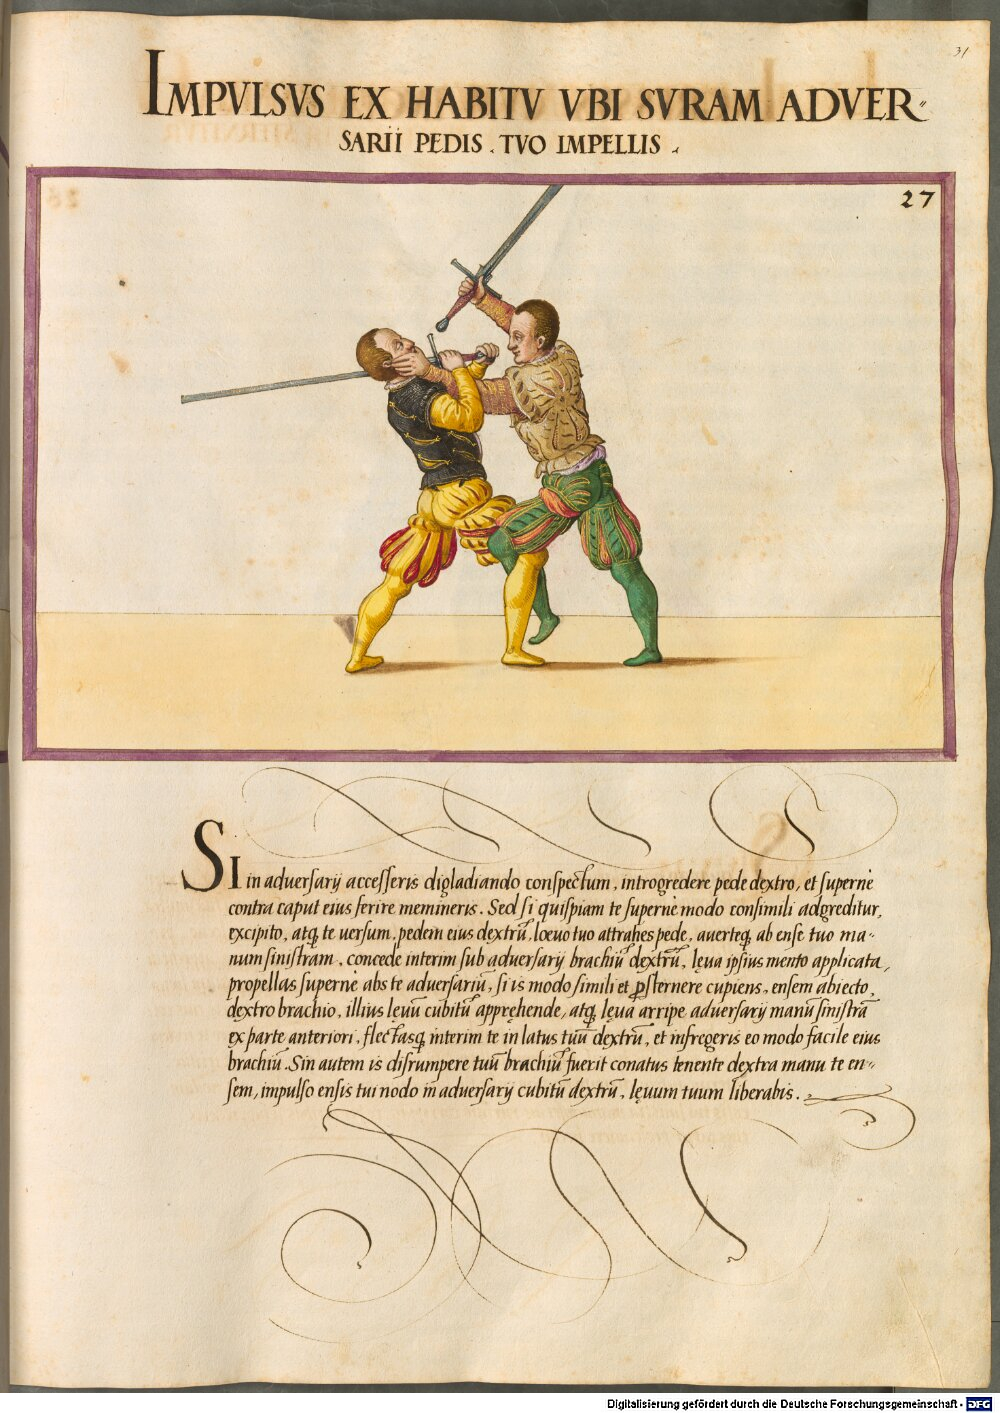 31
IMPVLSVS EX HABITV VBI SVRAM ADVER⸗
SARII PEDIS . TVO IMPELLIS .
27
SI in aduersarij accesseris digladiando conspectum, introgredere pede dextro, et supernè
contra caput eius ferire memineris. Sed si quispiam te supernè modo consimili adgreditur,
excipito, atq; te uersum, pedem eius dextrũ, loeuo tuo attrahes pede, auerteq; ab ense tuo ma⸗
num sinistram, concede interim sub aduersarij brachiũ dextrũ, lęua ipsius mento applicata,
propellas supernè abs te aduersariũ, si is modo simili et ꝓsternere cupiens, ensem abiecto,
dextro brachio, illius lęuũ cubitũ appręhende, atq; lęua arripe aduersarij manũ sinistrã
ex parte anteriori, flectasq; interim te in latus tuũ dextrũ, et infregeris eo modo facile eius
brachiũ. Sin autem is disrumpere tuũ brachiũ fuerit conatus tenente dextra manu te en⸗
sem, impulso ensis tui nodo in aduersarij cubitũ dextrũ, lęuum tuum liberabis.
Digitalisierung gefördert durch die Deutsche Forschungsgemeinschaft - DFG